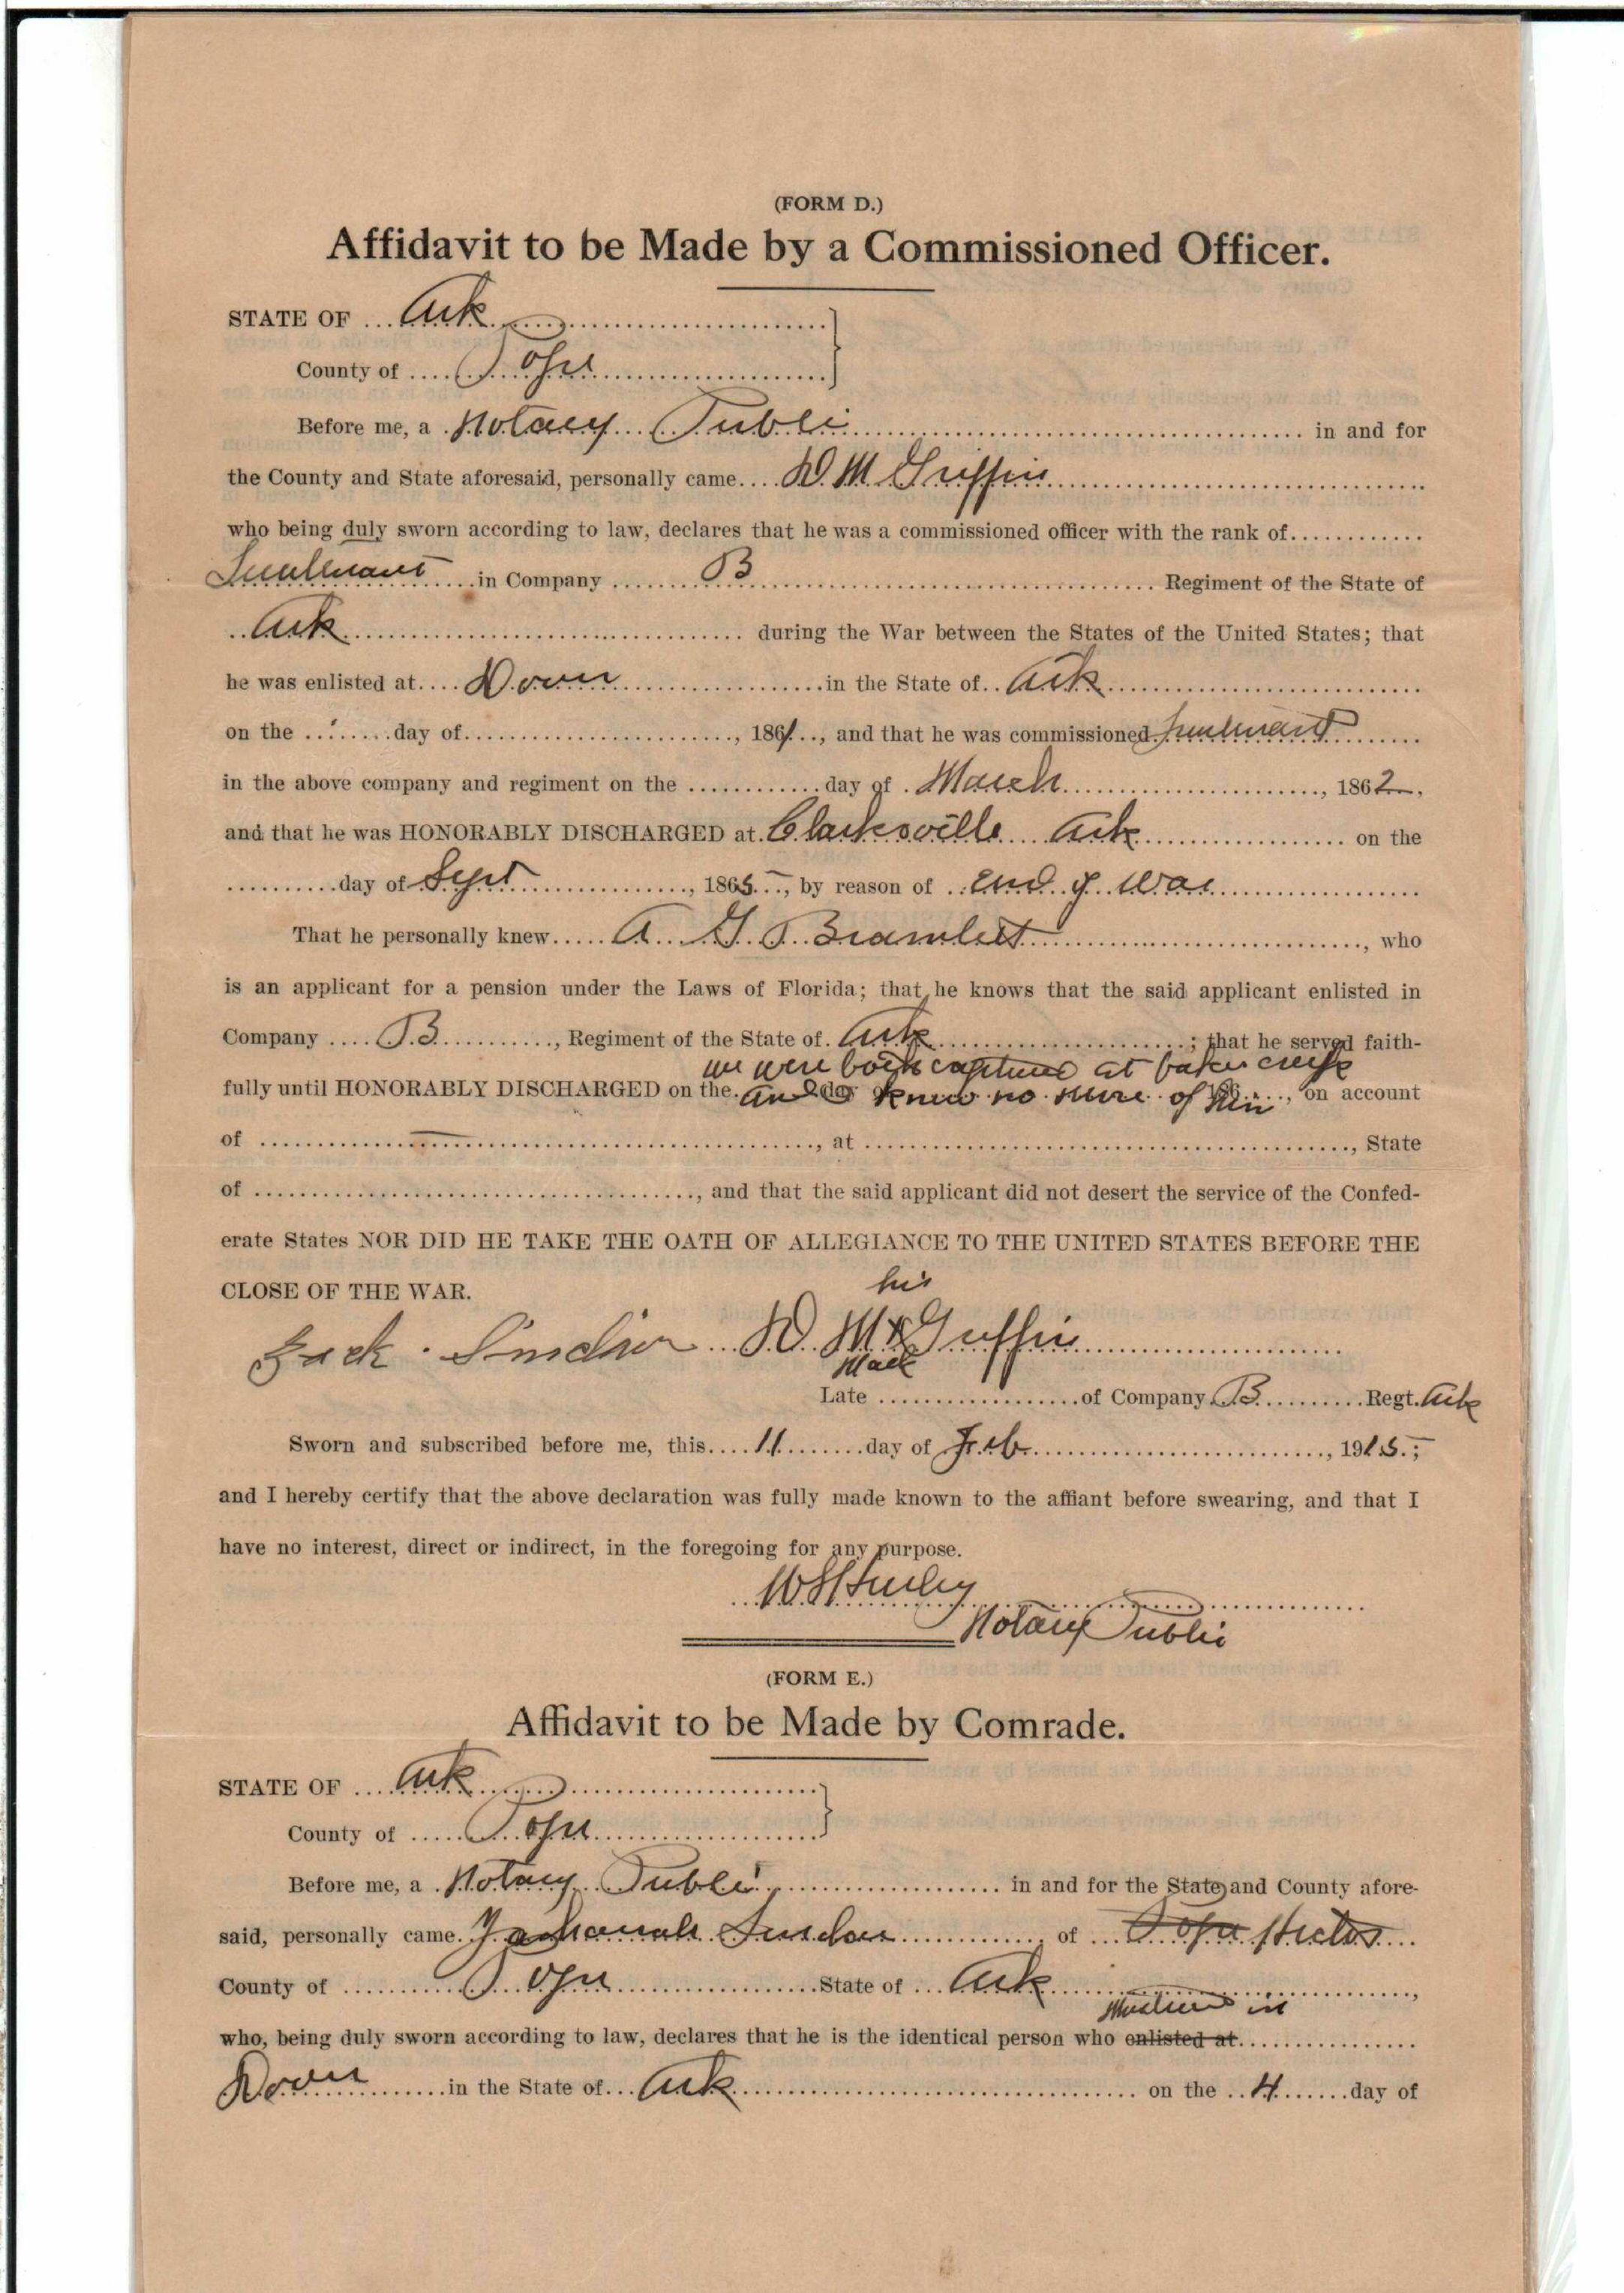 (FORM D.)
Affidavit to be Made by a Commissioned Officer.
STATE OF ... Ark
County of .... Pope
Before me, a Notary Publi in and for
the County and State aforesaid, personally came.... D. M. Griffin
who being duly sworn according to law, declares that he was a commissioned officer with the rank of
Lieutenant in Company B Regiment of the State of
Ark during the War between the States of the United States; that
he was enlisted at.... Dover in the State of.. Ark
on the day of, 1861.., and that he was commissioned Lieutenant
in the above company and regiment on the day of March, 1862,
and that he was HONORABLY DISCHARGED at Clarksville Ark on the
day of Sept, 1865, by reason of End of War
That he personally knew A. G. Bramlett, who
is an applicant for a pension under the Laws of Florida; that he knows that the said applicant enlisted in
Company B, Regiment of the State of Ark; that he served faith-
we were both captured at baker creek
fully until HONORABLY DISCHARGED on the and day of know no more of him 186, on account
of, at, State
of, and that the said applicant did not desert the service of the Confed-
erate States NOR DID HE TAKE THE OATH OF ALLEGIANCE TO THE UNITED STATES BEFORE THE
CLOSE OF THE WAR.
his
Zack Sinclair D. M. x Griffin
Mark
Late of Company B Regt. Ark
Sworn and subscribed before me, this 11 day of Feb, 1915;
and I hereby certify that the above declaration was fully made known to the affiant before swearing, and that I
have no interest, direct or indirect, in the foregoing for any purpose.
Notary Public
(FORM E.)
Affidavit to be Made by Comrade.
STATE OF .... Ark
County of ..... Pope
Before me, a Notary Publi in and for the State and County afore-
said, personally came. Sinclair of Pope Hector
County of Pope State of Ark,
Mustered in
who, being duly sworn according to law, declares that he is the identical person who enlisted at
Dover in the State of Ark on the 4 day of